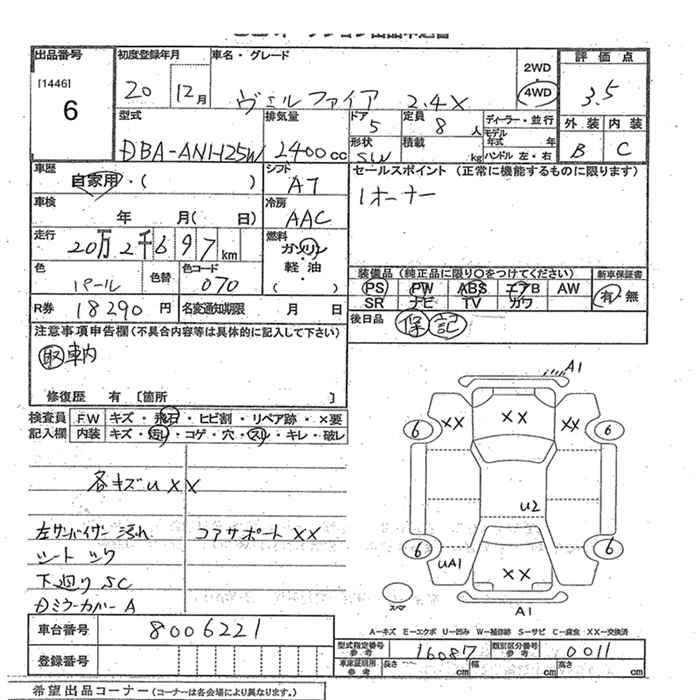 出品番号
[1446]
6
初度登録年月
20 12月
車名・グレード
ヴェルファイア 2.4X
2WD
・
4WD
評価点
3.5
外装 内装
B C
型式
DBA-ANH25W
排気量
2400cc
ドア 5
形状 SW
定員 8人
積載 kg
ディーラー・並行
モデル年式 年
ハンドル 左・右
車歴
自家用・( )
シフト
AT
セールスポイント (正常に機能するものに限ります)
1オーナー
車検
年 月( 日)
冷房
AAC
走行
20万2千697km
燃料
ガソリン
軽・油
( )
色
パール
色替
色コード
070
装備品 (純正品に限り○をつけてください)
新車保証書
PS PW ABS エアB AW
SR ナビ TV カワ
有・無
R券 18290円
名変通知期限 月 日
後日品 保 記
注意事項申告欄 (不具合内容等は具体的に記入して下さい)
取 車内
修復歴 有 [箇所 ]
検査員
記入欄
FW キズ・飛石・ヒビ割・リペア跡・×要
内装 キズ・汚レ・コゲ・穴・スレ・キレ・破レ
各キズu XX
左サンバイザー 汚れ コアサポート XX
シート シワ
下廻り SC
Dミラーカバー A
A1
XX XX XX
6 6
U2
6 6
UA1
XX
スペア
A1
A-キズ E-エクボ U-凹み W-補修跡 S-サビ C-腐食 XX-交換済
車台番号 8006221
登録番号
型式指定番号
参考
16087
類別区分番号
参考
0011
車庫証明用
参考
長さ cm
幅 cm
高さ cm
希望出品コーナー (コーナーは各会場により異なります。)